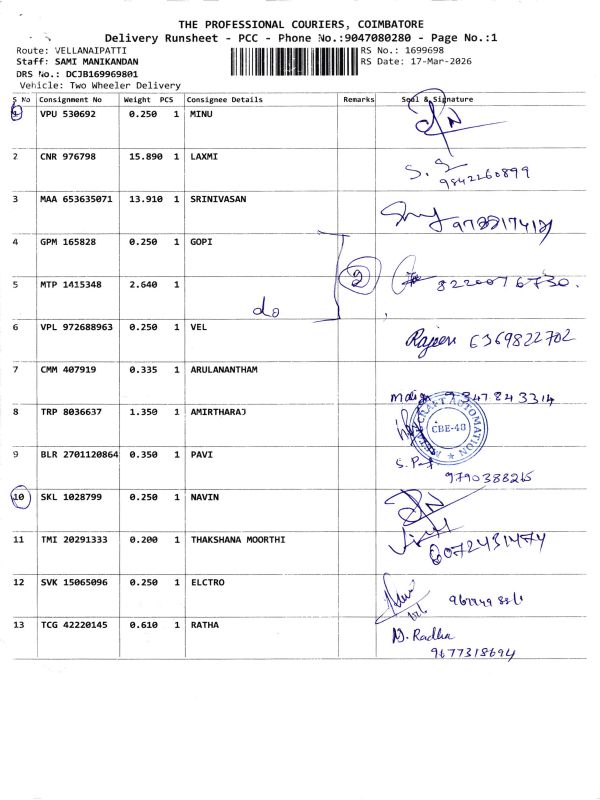 THE PROFESSIONAL COURIERS, COIMBATORE
Delivery Runsheet - PCC - Phone No.:9047080280 - Page No.:1
Route: VELLANAIPATTI RS No.: 1699698
Staff: SAMI MANIKANDAN RS Date: 17-Mar-2026
DRS No.: DCJB169969801
Vehicle: Two Wheeler Delivery
S No Consignment No Weight PCS Consignee Details Remarks Seal & Signature
1 VPU 530692 0.250 1 MINU
2 CNR 976798 15.890 1 LAXMI
9842260899
3 MAA 653635071 13.910 1 SRINIVASAN
4 GPM 165828 0.250 1 GOPI
5 MTP 1415348 2.640 1 do 2 8220076730.
6 VPL 972688963 0.250 1 VEL Rajeen 6369822702
7 CMM 407919 0.335 1 ARULANANTHAM
9347843314
8 TRP 8036637 1.350 1 AMIRTHARAJ CBE-48
9 BLR 2701120864 0.350 1 PAVI
9790388265
10 SKL 1028799 0.250 1 NAVIN
11 TMI 20291333 0.200 1 THAKSHANA MOORTHI 8072431474
12 SVK 15065096 0.250 1 ELCTRO
13 TCG 42220145 0.610 1 RATHA N. Radha
9677318694